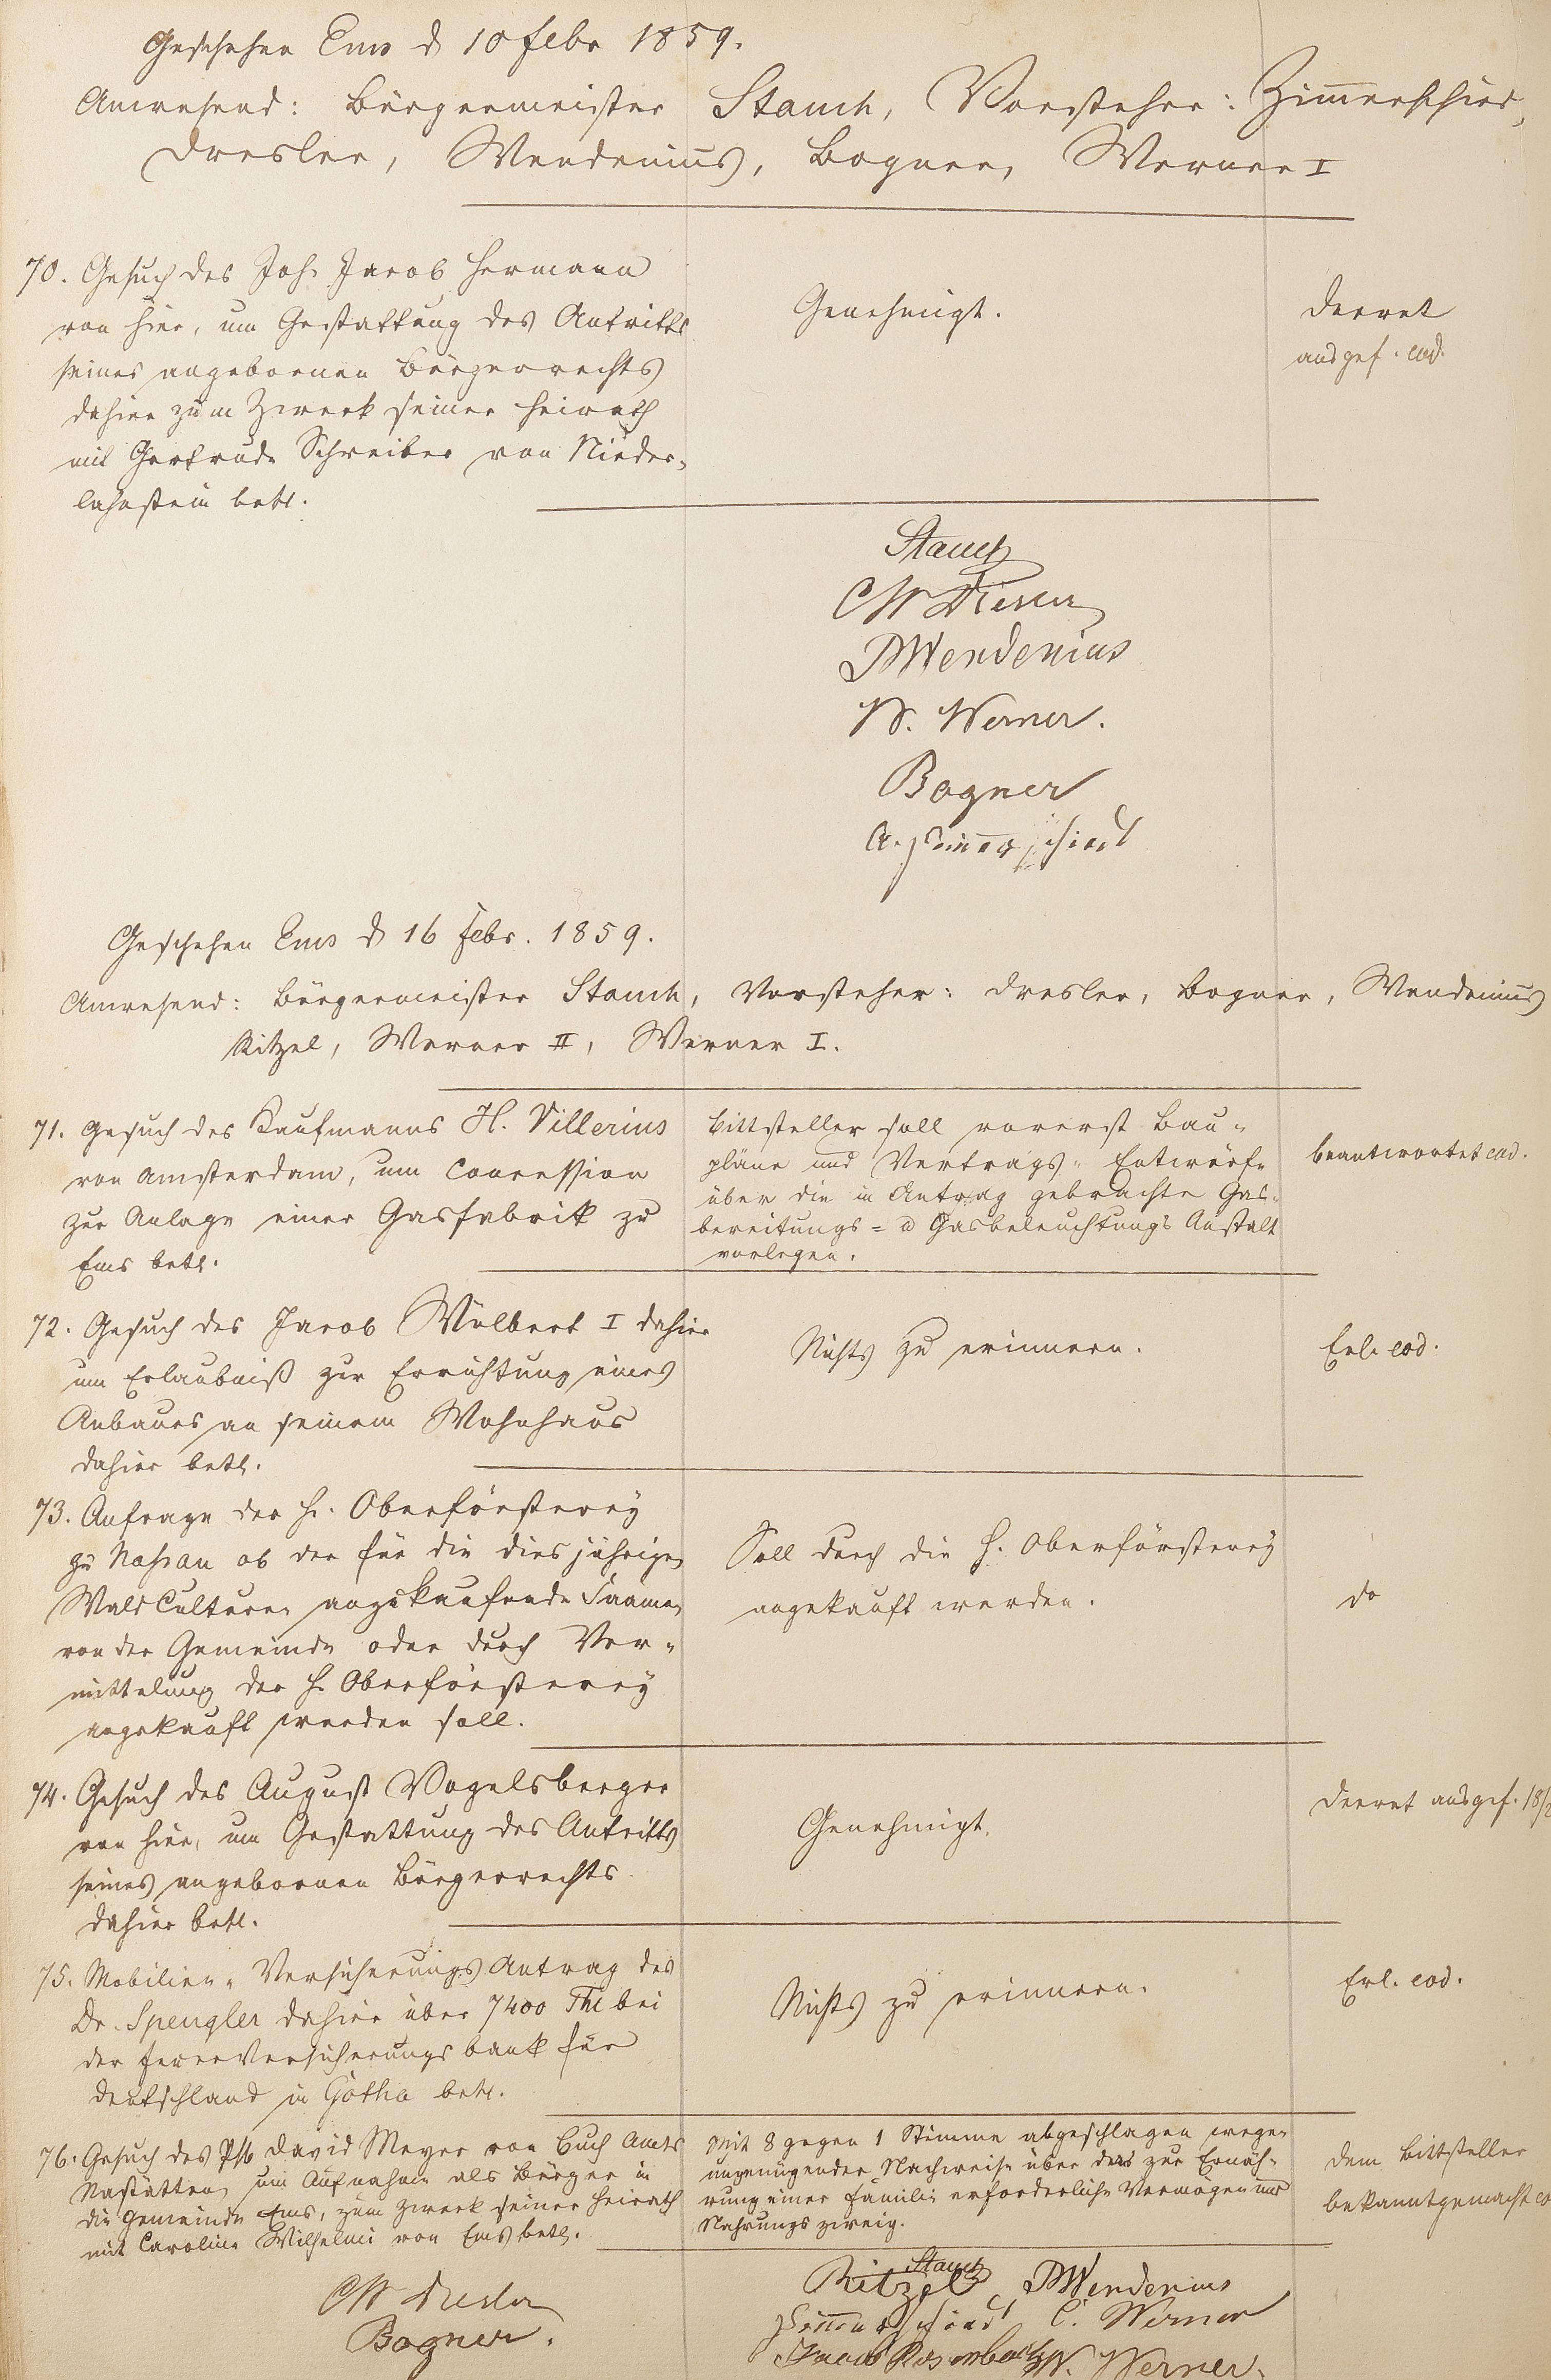 Geschehen Ems d 10 Febr 1859.
Anwesend: Bürgermeister Stauch, Vorsteher: Zim̄erschied,
Dresler, Wendenius, Bogner, Werner I
70. Gesuch des Joh. Jacob Hermann
von hier, um Gestattung des Antritts
seines angebornen Bürgerrechts
dahier zum Zweck seiner Heirath
mit Gertrude Schreiber von Nieder-
lahnstein betr.
Genehmigt.
Decret
ausgef. eod.
Stauch
CW Dresler
Wendenius
W. Werner.
Bogner
A. Zim̄erschied
Geschehen Ems d 16 Febr. 1859.
Anwesend: Bürgermeister Stauch, Vorsteher: Dresler, Bogner, Wendenius
Ritzel, Werner II, Werner I.
71. Gesuch des Kaufmanns H. Villerius
von Amsterdam, um Concession
zur Anlage einer Gasfabrik zu
Ems betr.
Bittsteller soll vorerst Bau-
pläne und Vertrags-Entwürfe
über die in Antrag gebrachte Gas-
bereitungs- u Gasbeleuchtungs Anstalt
vorlegen.
beantwortet eod.
72. Gesuch des Jacob Wilbert I dahier
um Erlaubniß zur Errichtung eines
Anbaues an seinem Wohnhaus
dahier betr.
Nichts zu erinnern.
Erl. eod.
73. Anfrage der H. Oberförsterey
zu Nassau ob der für die diesjährigen
Wald Culturen anzukaufende Saamen
von der Gemeinde oder durch Ver-
mittelung der H. Oberförsterey
angekauft werden soll.
Soll durch die H. Oberförsterey
angekauft werden.
do
74. Gesuch des August Vogelsberger
von hier, um Gestattung des Antritts
seines angebornen Bürgerrechts
dahier betr.
Genehmigt.
Decret ausgef. 18/2
75. Mobilien-Versicherungs Antrag des
Dr. Spengler dahier über 7400 Thl bei
der FeuerVersicherungsbank für
Deutschland in Gotha betr.
Nichts zu erinnern.
Erl. eod.
76. Gesuch des David Meyer von Buch Amts
Nastätten, um Aufnahme als Bürger in
die Gemeinde Ems, zum Zweck seiner Heirath
mit Caroline Wilhelmi von Ems betr.
Mit 8 gegen 1 Stimme abgeschlagen wegen
ungenügender Nachweise über das zur Ernäh-
rung einer Familie erforderliche Vermögen und
Nahrungszweig.
Dem Bittsteller
bekanntgemacht
CW Dresler
Bogner.
Stauch
Ritzel Wendenius
Zim̄erschied C. Werner
Jacob Rosenbach W. Werner.